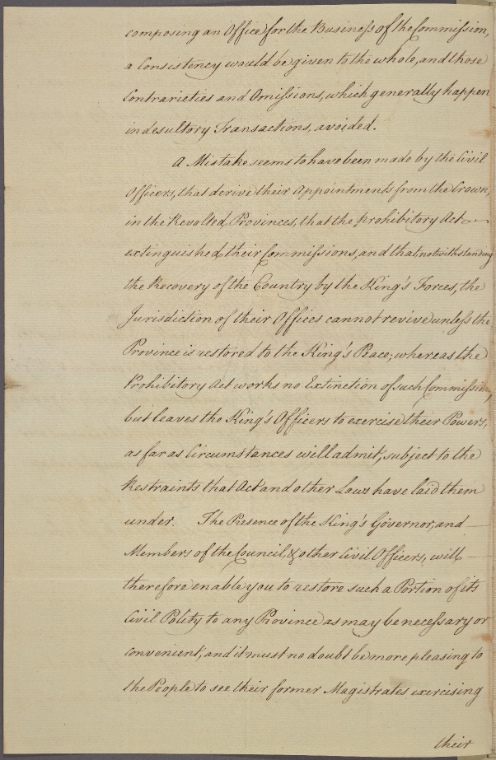 composing an Office for the Business of the Commission,
a Consistency would be given to the whole, and those
Contrarieties and Omissions, which generally happen
in desultory Transactions, avoided.
A Mistake seems to have been made by the Civil
Officers, that derive their Appointments from the Crown,
in the Revolted Provinces, that the prohibitory Act
extinguished their Commissions, and that notwithstanding
the Recovery of the Country by the King's Forces, the
Jurisdiction of their Offices cannot revive unless the
Province is restored to the King's Peace; whereas the
Prohibitory Act works no Extinction of such Commission,
but leaves the King's Officers to exercise their Powers,
as far as Circumstances will admit, subject to the
Restraints that Act and other Laws have laid them
under. The Presence of the King's Governor, and
Members of the Council, & other Civil Officers, will
therefore enable you to restore such a Portion of its
Civil Polity to any Province as may be necessary or
convenient; and it must no doubt be more pleasing to
the People to see their former Magistrates exercising
their